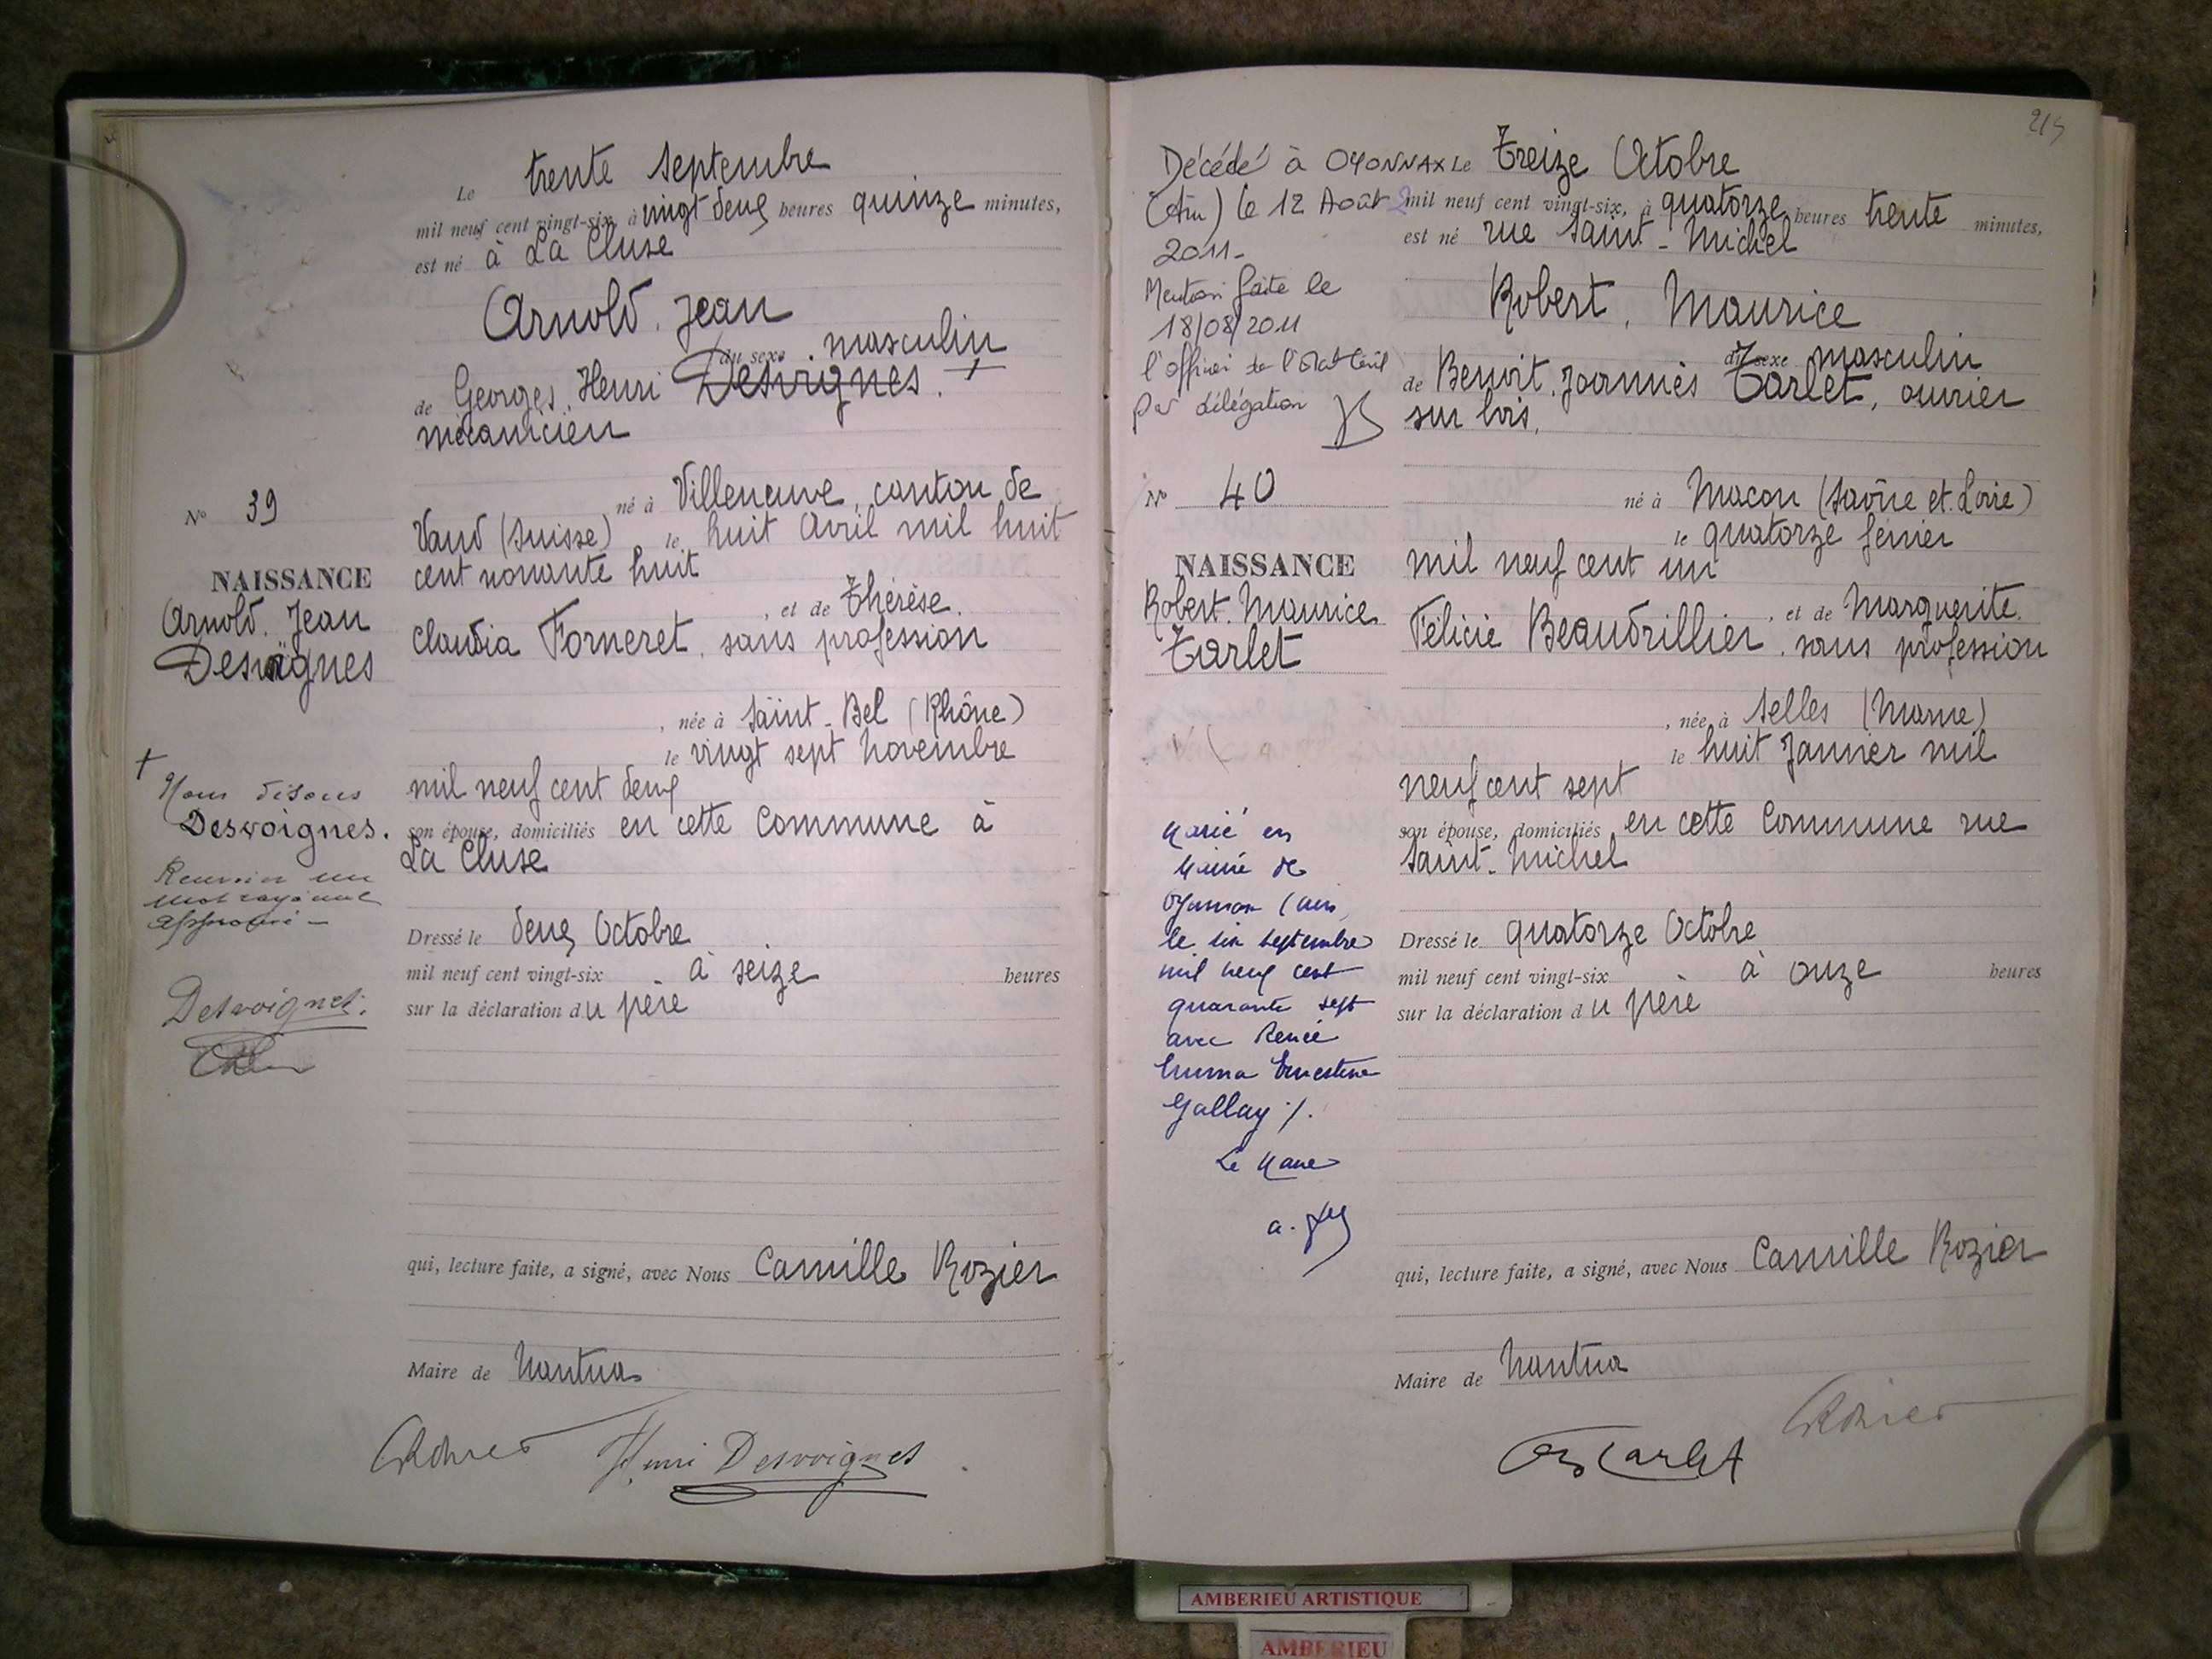 Le trente Septembre
mil neuf cent vingt-six, à vingt deux heures quinze minutes,
est né à La Cluse
Arnold, Jean
du sexe masculin
de Georges, Henri Desvignes. +
mécanicien
N° 39
né à Villeneuve, canton de
Vaud (Suisse) le huit Avril mil huit
cent nonante huit
NAISSANCE
Arnold, Jean
Desvoignes
, et de Thérèse,
Claudia Forneret, sans profession
, née à Saint-Bel (Rhône)
le vingt sept Novembre
mil neuf cent deux
+
Nous disons
Desvoignes.
son épouse, domiciliés en cette Commune à
La Cluse
un
mot rayé nul
approuvé -
Desvoignes.
Dressé le deux Octobre
mil neuf cent vingt-six à seize heures
sur la déclaration du père
qui, lecture faite, a signé, avec Nous Camille Rozier
Maire de Nantua
CRozier Henri Desvoignes
215
Décédé à OYONNAX
(Ain) le 12 Août
2011-
Mention faite le
18/08/2011
l'officier de l'Etat Civil
par délégation
Le Treize Octobre
mil neuf cent vingt-six, à quatorze heures trente minutes,
est né rue Saint-Michel
Robert, Maurice
du sexe masculin
de Benoit, Joannès Tarlet, ouvrier
sur bois,
N° 40
né à Macon (Saône et Loire)
le quatorze février
mil neuf cent un
NAISSANCE
Robert, Maurice
Tarlet
, et de Marguerite,
Félicie Beaudrillier, sans profession
, née à Selles (Marne)
le huit Janvier mil
neuf cent sept
son épouse, domiciliés en cette Commune rue
Saint-Michel
Marié en
Mairie de
Oyonnax (Ain)
le six septembre
mil neuf cent
quarante sept
avec Renée
Emma Ernestine
Gallay ./.
Le Maire
Dressé le quatorze Octobre
mil neuf cent vingt-six à onze heures
sur la déclaration du père
qui, lecture faite, a signé, avec Nous Camille Rozier
Maire de Nantua
Tarlet CRozier
AMBERIEU ARTISTIQUE
AMBERIEU